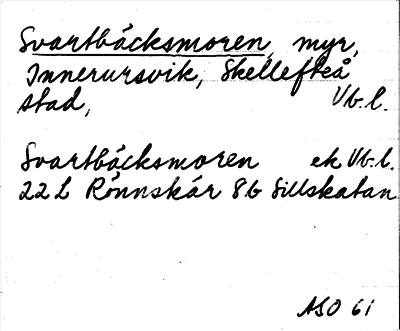 Svartbäcksmoren, myr,
Innerursvik, Skellefteå
stad, Vb.l.
Svartbäcksmoren ek Vb.l.
22 L Rönnskär 8b Sillskatan
ASO 61